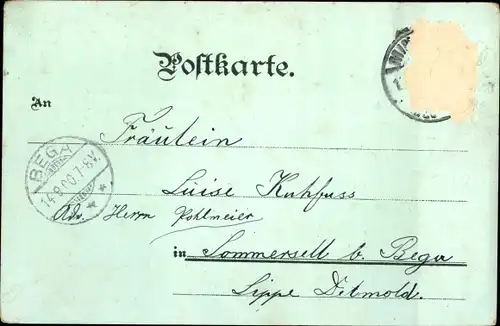 Postkarte.
An
Fräulein
BEGA
14.9.00.7-8V.
Luise Kuhfuss
Adr. Herrn Pohlmeier
in Sommersell b. Bega
Lippe Ditmold.